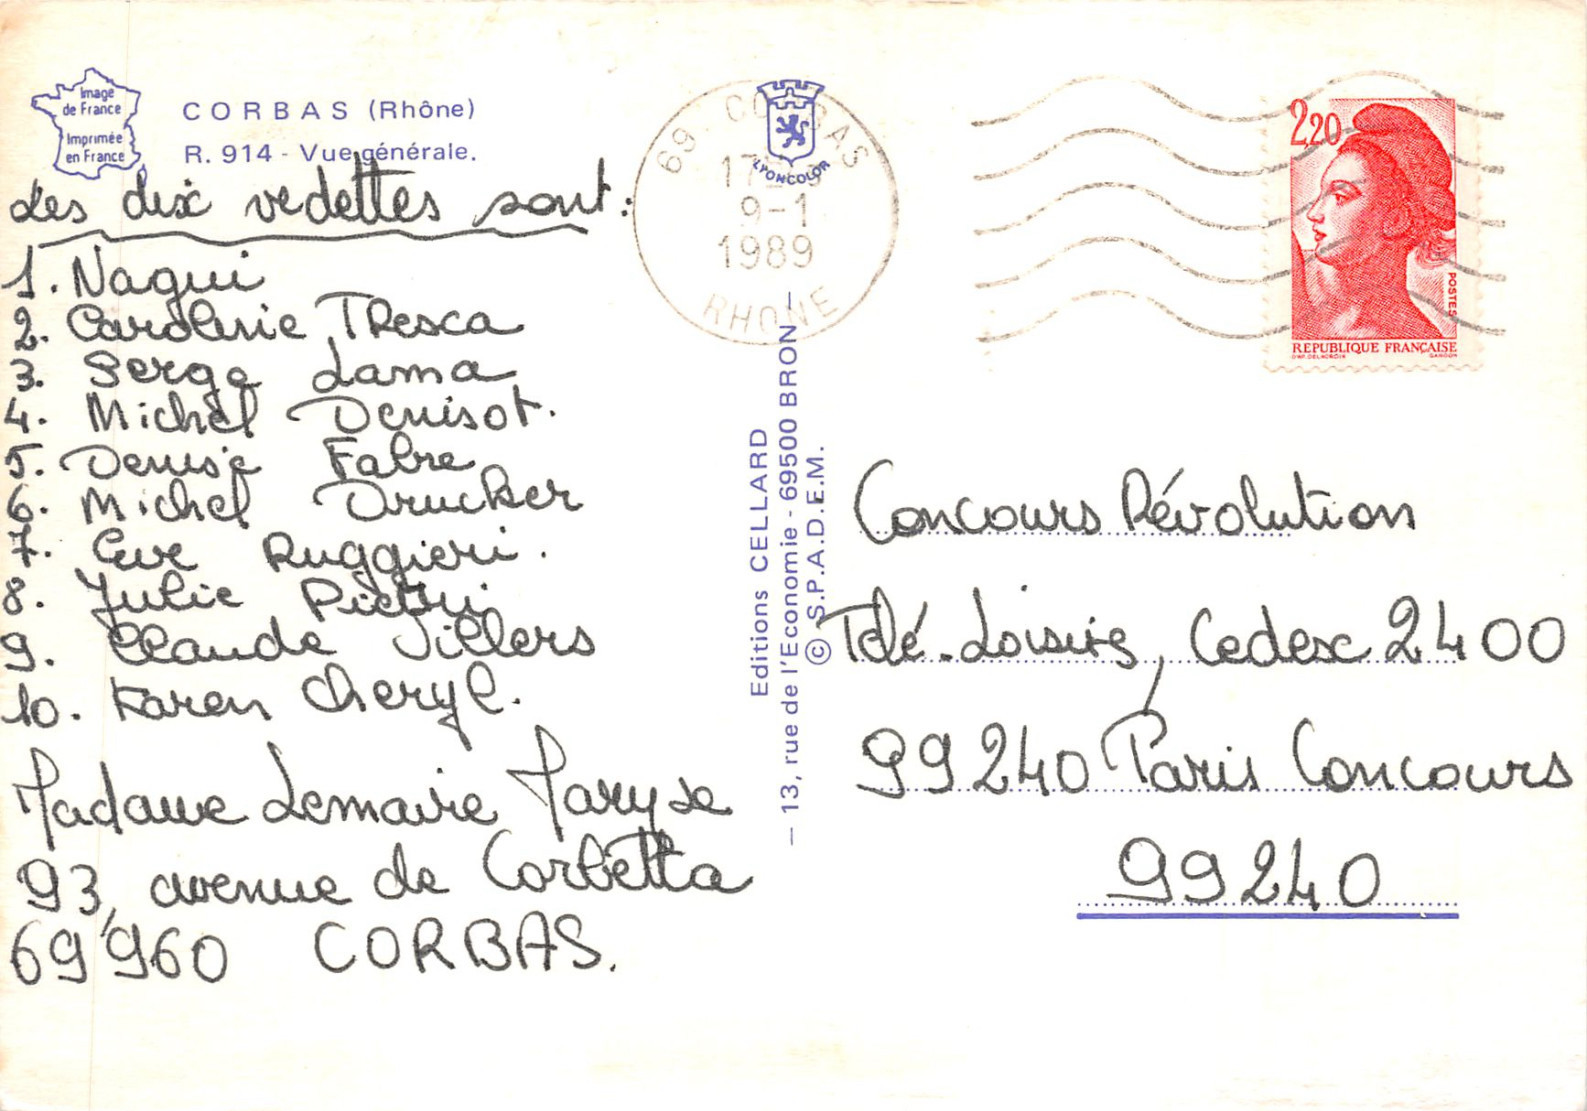 Image
de France
Imprimée
en France
CORBAS (Rhône)
R. 914 - Vue générale.
Les dix vedettes sont:
1. Nagui
2. Caroline TResca
3. Serge Lama
4. Michel Denisot.
5. Denise Fabre
6. Michel Drucker
7. Eve Ruggieri.
8. Julie Pietri
9. Claude Villers
10. Karen Cheryl.
Madame Lemaire Maryse
93, avenue de Corbetta
69960 CORBAS.
69 - CORBAS
9-1
1989
RHONE
LYONCOLOR
Editions CELLARD
— 13, rue de l'Economie - 69500 BRON —
© S.P.A.D.E.M.
2,20
POSTES
REPUBLIQUE FRANÇAISE
D'AP. DELACROIX GANDON
Concours Révolution
Télé-Loisirs, Cedex 2400
99240 Paris Concours
99240